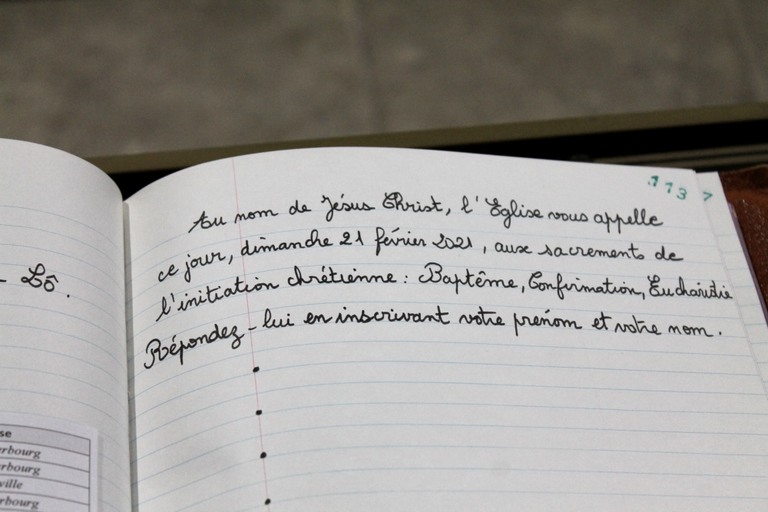 113
Au nom de Jésus Christ, l'Eglise vous appelle
ce jour, dimanche 21 février 2021, aux sacrements de
l'initiation chrétienne : Baptême, Confirmation, Eucharistie
Répondez-lui en inscrivant votre prénom et votre nom.
- Lô.
se
erbourg
erbourg
ville
erbourg